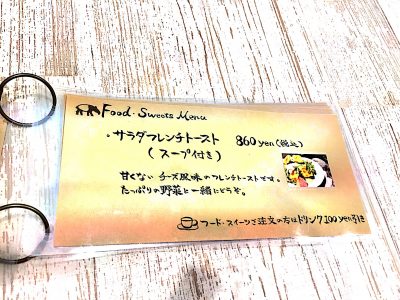 Food・Sweets Menu
・サラダフレンチトースト 860yen(税込)
(スープ付き)
甘くない チーズ風味のフレンチトーストです。
たっぷりの野菜と一緒にどうぞ。
フード・スイーツご注文の方はドリンク100yen引き